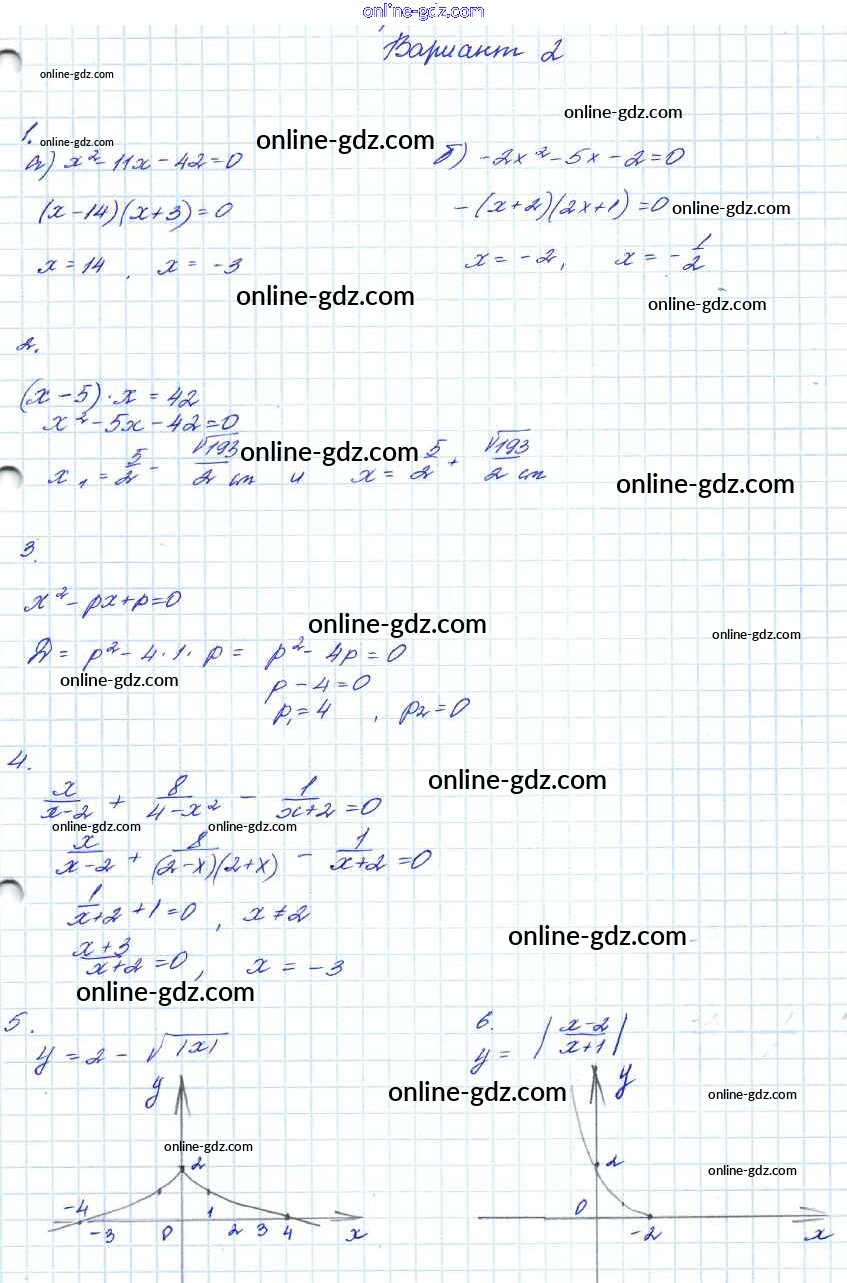 online-gdz.com
Вариант 2
online-gdz.com
online-gdz.com
1.
online-gdz.com
а) x² - 11x - 42 = 0
online-gdz.com
б) -2x² - 5x - 2 = 0
(x - 14)(x + 3) = 0
-(x + 2)(2x + 1) = 0
online-gdz.com
x = 14, x = -3
x = -2, x = -1/2
online-gdz.com
online-gdz.com
2.
(x - 5) · x = 42
x² - 5x - 42 = 0
online-gdz.com
x₁ = 5/2 - √193/2 cm и x = 5/2 + √193/2 cm
online-gdz.com
3.
x² - px + p = 0
online-gdz.com
online-gdz.com
D = p² - 4 · 1 · p = p² - 4p = 0
online-gdz.com
p - 4 = 0
p₁ = 4, p₂ = 0
4.
online-gdz.com
x/(x-2) + 8/(4-x²) - 1/(x+2) = 0
online-gdz.com
online-gdz.com
x/(x-2) + 8/((2-x)(2+x)) - 1/(x+2) = 0
1/(x+2) + 1 = 0, x ≠ 2
online-gdz.com
(x+3)/(x+2) = 0, x = -3
online-gdz.com
5.
y = 2 - √|x|
6.
y = |(x-2)/(x+1)|
online-gdz.com
online-gdz.com
y
online-gdz.com
2
-4
-3 0 1 2 3 4 x
y
online-gdz.com
2
0
-2 x